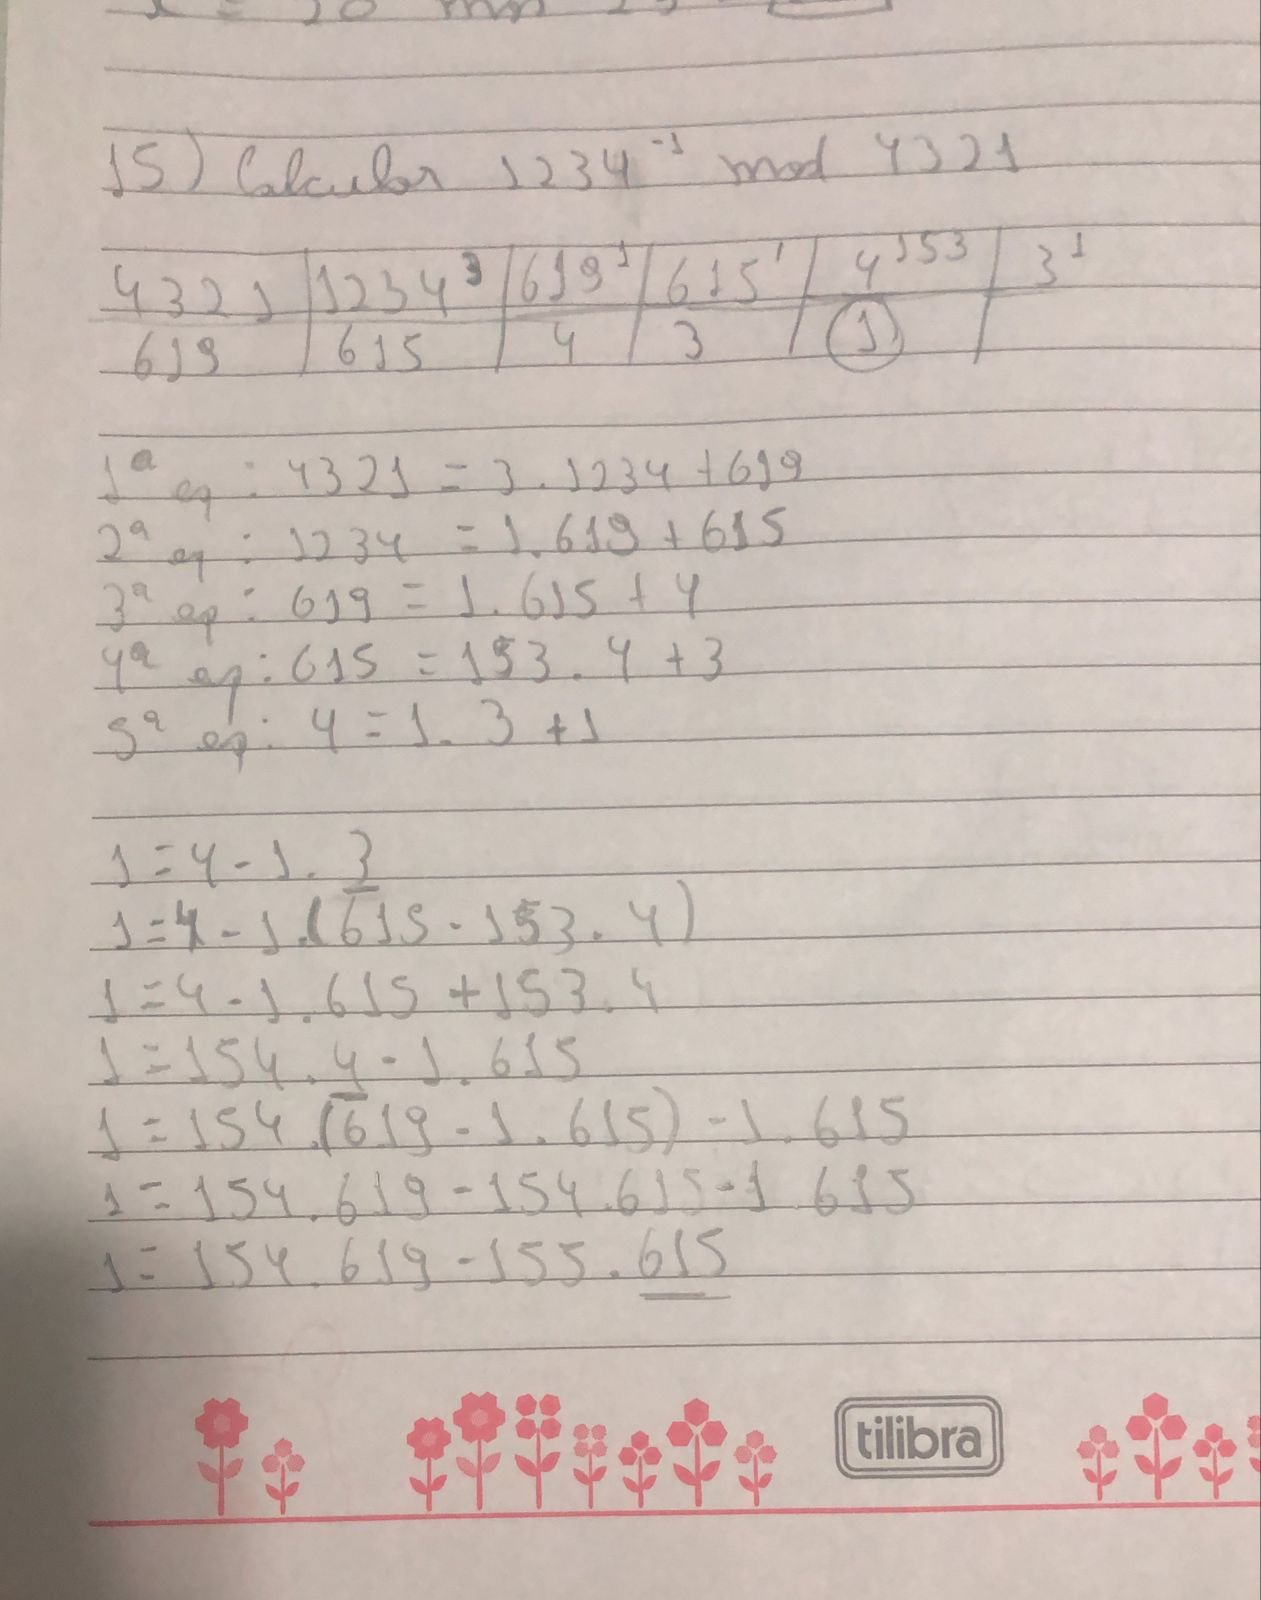 15) Calcular 1234⁻¹ mod 4321
4321 | 1234³ | 619¹ | 615¹ | 4¹⁵³ | 3¹
619 | 615 | 4 | 3 | 1
1ª eq: 4321 = 3.1234+619
2ª eq: 1234 = 1.619+615
3ª eq: 619 = 1.615+4
4ª eq: 615 = 153.4+3
5ª eq: 4=1.3+1
1=4-1.3
1=4-1.(615-153.4)
1=4-1.615+153.4
1=154.4-1.615
1=154.(619-1.615)-1.615
1=154.619-154.615-1.615
1=154.619-155.615
tilibra